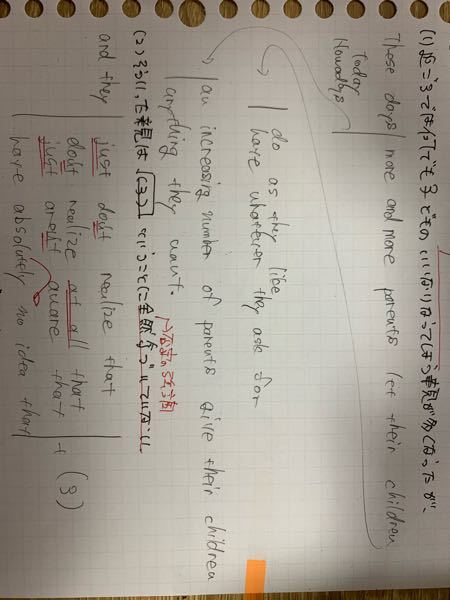 (1) 近ごろでは何でも子どものいいなりになってしまう親が多くなったが、
These days | more and more parents let their children
Today
Nowadays
do as they like
have whatever they ask for
an increasing number of parents give their children
anything they want.
(2) そういった親は (3) ということに全然気づいていない。
→否定の強調
and they | just don't realize that
don't realize at all that
just aren't aware that + (3)
have absolutely no idea that